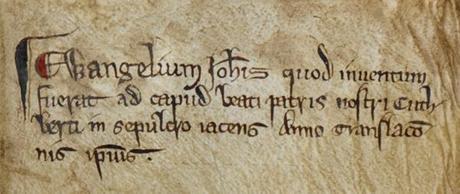 Evangelium Joh̄is quod inventum
fuerat ad capud beati patris nostri Cuth
berti in sepulcro iacens Anno translac̄o
nis ip̄ius.